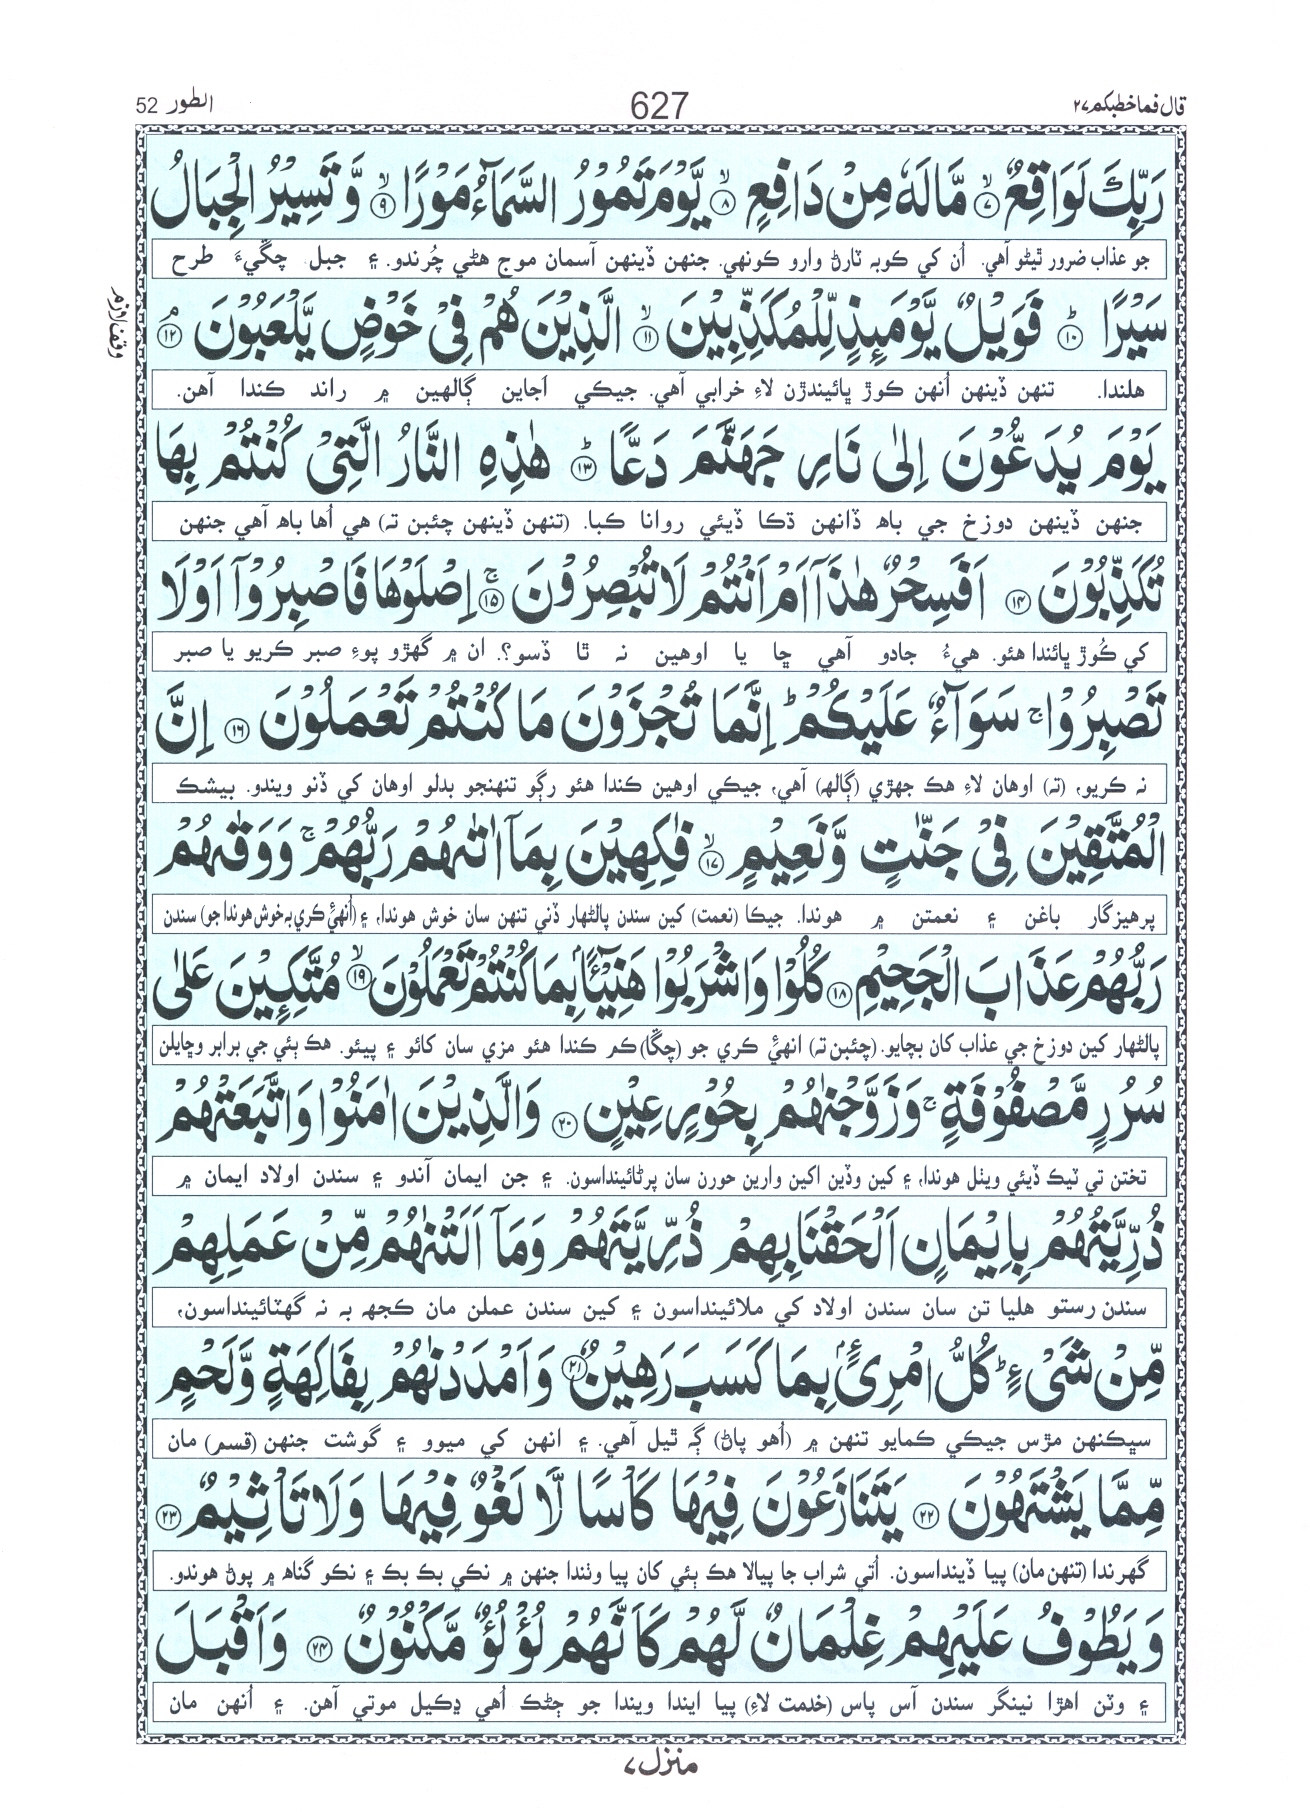 قال فما خطبکم ٢٧
627
الطور 52
رَبِّكَ لَوَاقِعٌ ۙ۝٧ مَّا لَهٗ مِنْ دَافِعٍ ۙ۝٨ يَّوْمَ تَمُوْرُ السَّمَآءُ مَوْرًا ۙ۝٩ وَّ تَسِيْرُ الْجِبَالُ
جو عذاب ضرور ٿيڻو آهي. اُن کي ڪوبہ ٽارڻ وارو ڪونهي. جنهن ڏينهن آسمان موج هڻي چُرندو. ۽ جبل چڱيءَ طرح
سَيْرًا ؕ۝١٠ فَوَيْلٌ يَّوْمَىِٕذٍ لِّلْمُكَذِّبِيْنَ ۙ۝١١ الَّذِيْنَ هُمْ فِيْ خَوْضٍ يَّلْعَبُوْنَ ۘ۝١٢
وقف لازم
هلندا. تنهن ڏينهن اُنهن ڪوڙ ڀائيندڙن لاءِ خرابي آهي. جيڪي اَجاين ڳالهين ۾ راند ڪندا آهن.
يَوْمَ يُدَعُّوْنَ اِلٰى نَارِ جَهَنَّمَ دَعًّا ؕ۝١٣ هٰذِهِ النَّارُ الَّتِيْ كُنْتُمْ بِهَا
جنهن ڏينهن دوزخ جي باهہ ڏانهن ڌڪا ڏيئي روانا ڪبا. (تنهن ڏينهن چئبن تہ) هي اُها باهہ آهي جنهن
تُكَذِّبُوْنَ ۝١٤ اَفَسِحْرٌ هٰذَاۤ اَمْ اَنْتُمْ لَا تُبْصِرُوْنَ ۚ۝١٥ اِصْلَوْهَا فَاصْبِرُوْۤا اَوْ لَا
کي ڪُوڙ ڀائندا هئو. هيءُ جادو آهي ڇا يا اوهين نہ ٿا ڏسو؟. ان ۾ گهڙو پوءِ صبر ڪريو يا صبر
تَصْبِرُوْا ۚ سَوَآءٌ عَلَيْكُمْ ؕ اِنَّمَا تُجْزَوْنَ مَا كُنْتُمْ تَعْمَلُوْنَ ۝١٦ اِنَّ
نہ ڪريو، (تہ) اوهان لاءِ هڪ جهڙي (ڳالهہ) آهي، جيڪي اوهين ڪندا هئو رڳو تنهنجو بدلو اوهان کي ڏنو ويندو. بيشڪ
الْمُتَّقِيْنَ فِيْ جَنّٰتٍ وَّ نَعِيْمٍ ۙ۝١٧ فٰكِهِيْنَ بِمَاۤ اٰتٰىهُمْ رَبُّهُمْ ۚ وَ وَقٰىهُمْ
پرهيزگار باغن ۽ نعمتن ۾ هوندا. جيڪا (نعمت) کين سندن پالڻهار ڏني تنهن سان خوش هوندا، ۽ (اُنهيءَ ڪري بہ خوش هوندا جو) سندن
رَبُّهُمْ عَذَابَ الْجَحِيْمِ ۝١٨ كُلُوْا وَ اشْرَبُوْا هَنِيْٓـًٔۢا بِمَا كُنْتُمْ تَعْمَلُوْنَ ۙ۝١٩ مُتَّكِـِٕيْنَ عَلٰى
پالڻهار کين دوزخ جي عذاب کان بچايو. (چئبن تہ) انهيءَ ڪري جو (چڱا) ڪم ڪندا هئو مزي سان کائو ۽ پيئو. هڪ ٻئي جي برابر وڇايلن
سُرُرٍ مَّصْفُوْفَةٍ ۚ وَ زَوَّجْنٰهُمْ بِحُوْرٍ عِيْنٍ ۝٢٠ وَ الَّذِيْنَ اٰمَنُوْا وَ اتَّبَعَتْهُمْ
تختن تي ٽيڪ ڏيئي ويٺل هوندا، ۽ کين وڏين اکين وارين حورن سان پرڻائينداسون. ۽ جن ايمان آندو ۽ سندن اولاد ايمان ۾
ذُرِّيَّتُهُمْ بِاِيْمَانٍ اَلْحَقْنَا بِهِمْ ذُرِّيَّتَهُمْ وَ مَاۤ اَلَتْنٰهُمْ مِّنْ عَمَلِهِمْ
سندن رستو هليا تن سان سندن اولاد کي ملائينداسون ۽ کين سندن عملن مان ڪجهہ بہ نہ گهٽائينداسون،
مِّنْ شَيْءٍ ؕ كُلُّ امْرِئٍۭ بِمَا كَسَبَ رَهِيْنٌ ۝٢١ وَ اَمْدَدْنٰهُمْ بِفَاكِهَةٍ وَّ لَحْمٍ
سڀڪنهن مڙس جيڪي ڪمايو تنهن ۾ (اُهو پاڻ) ڳہ ٿيل آهي. ۽ انهن کي ميوو ۽ گوشت جنهن (قسم) مان
مِّمَّا يَشْتَهُوْنَ ۝٢٢ يَتَنَازَعُوْنَ فِيْهَا كَاْسًا لَّا لَغْوٌ فِيْهَا وَ لَا تَاْثِيْمٌ ۝٢٣
گهرندا (تنهن مان) پيا ڏينداسون. اُتي شراب جا پيالا هڪ ٻئي کان پيا وٺندا جنهن ۾ نڪي بڪ بڪ ۽ نڪو گناهہ ۾ پوڻ هوندو.
وَ يَطُوْفُ عَلَيْهِمْ غِلْمَانٌ لَّهُمْ كَاَنَّهُمْ لُؤْلُؤٌ مَّكْنُوْنٌ ۝٢٤ وَ اَقْبَلَ
۽ وٽن اهڙا نينگر سندن آس پاس (خدمت لاءِ) پيا ايندا ويندا جو ڄڻڪ اُهي ڍڪيل موتي آهن. ۽ اُنهن مان
منزل ٧